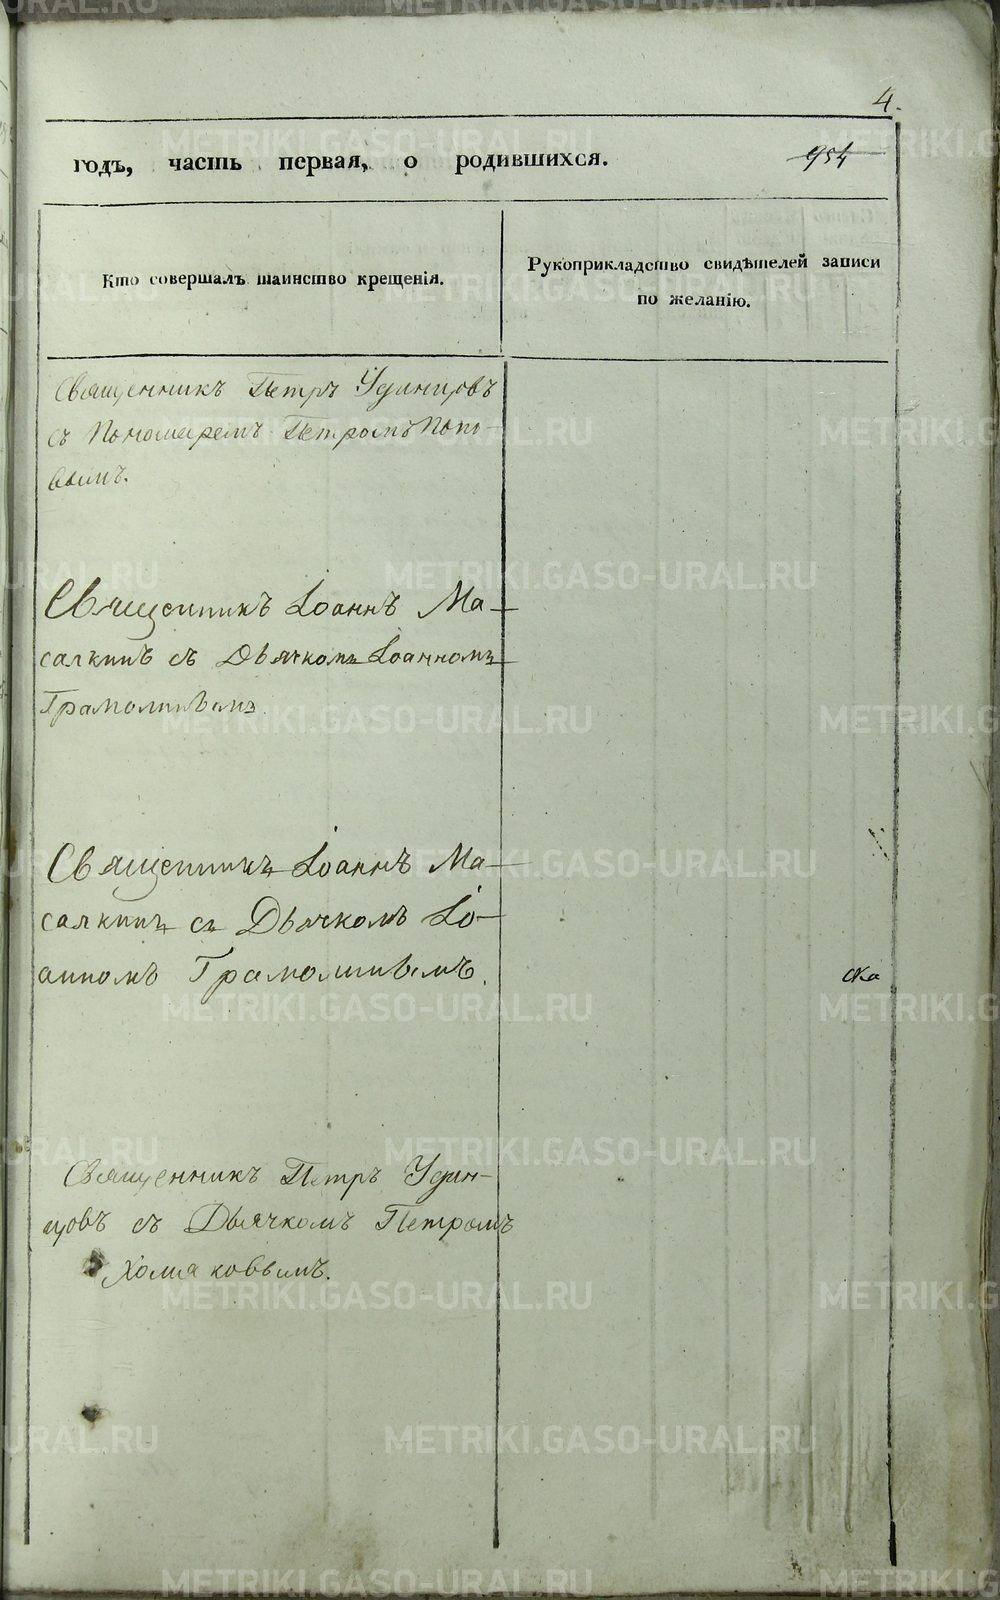 4.
годъ, часть первая, о родившихся.
954
Кто совершалъ таинство крещенія.
Рукоприкладство свидѣтелей записи
по желанію.
Священникъ Петръ Удинцовъ
съ Пономаремъ Петромъ Попо-
вымъ.
Священникъ Іоаннъ Ма-
салкинъ съ Дьячкомъ Іоанномъ
Священникъ Іоаннъ Ма-
салкинъ съ Дьячкомъ Іо-
анномъ
Священникъ Петръ Удин-
цовъ съ Дьячкомъ Петромъ
Хомяковымъ.
METRIKI.GASO-URAL.RU